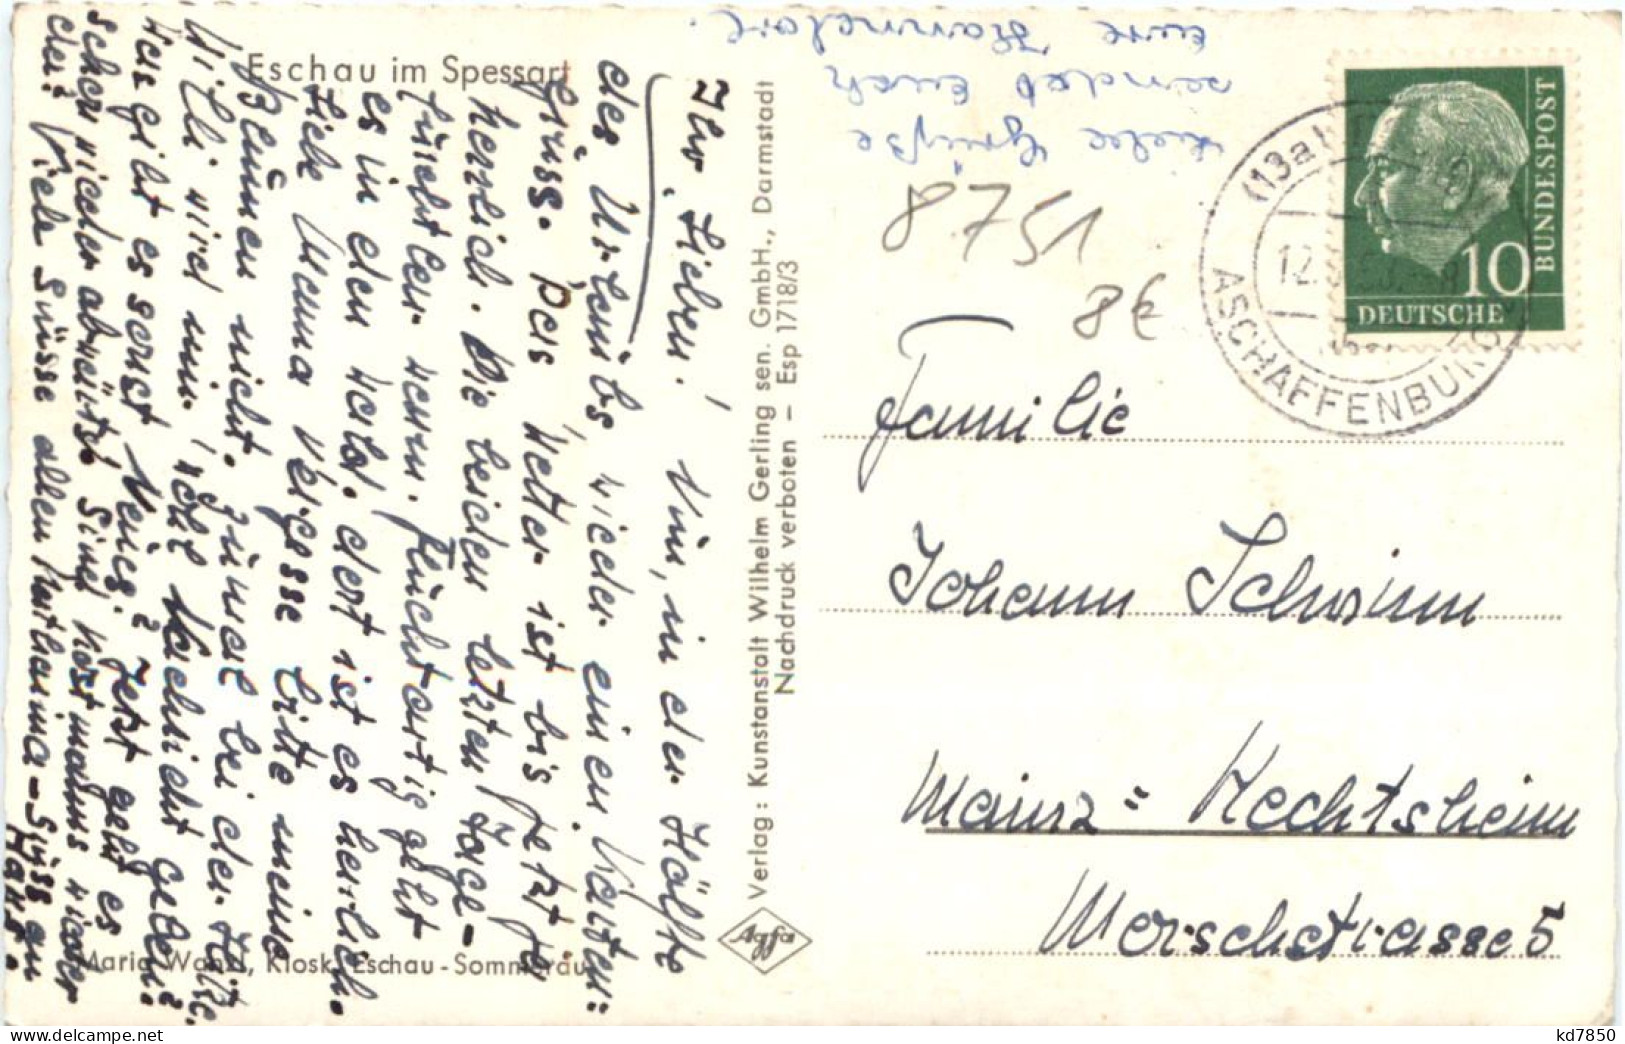 Eschau im Spessart
Ihr Lieben! Nun, in der Hälfte
des Urlaubs, wieder einen Karten-
Grüss. Das Wetter ist bis jetzt ja
herrlich. Die beiden letzten Tage
fürchterlich warm. Flüchtartig geht
es in den Wald. dort ist es herrlich.
Liebe Mama vergesse bitte meine
Blumen nicht. zumal bei der Hitze.
Willi wird mir, wohl Nachricht geben.
Was gibt es sonst Neues? Jetzt geht es
schon wieder abwärts. Sind Horstmanns wieder
da? Viele Grüsse allen
Hans.
Maria Wandl, Kiosk, Eschau-Sommerau
Verlag: Kunstanstalt Wilhelm Gerling sen. GmbH., Darmstadt
Nachdruck verboten – Esp 1718/3
Agfa
Liebe Grüße
sendet Euch
eure Hannelore.
8751
8€
(13a)
12.
ASCHAFFENBURG
BUNDESPOST
10
DEUTSCHE
Familie
Johann Schwinn
Mainz-Hechtsheim
Morschstrasse 5
kd7850